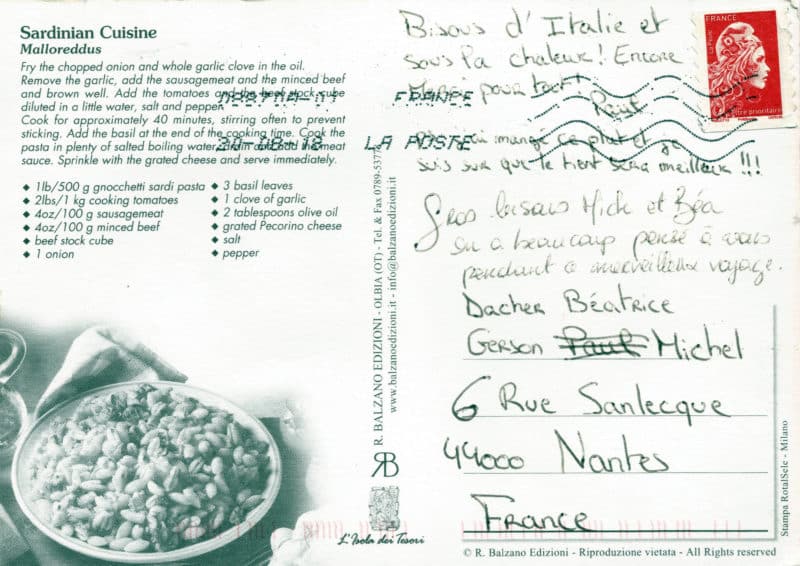 Sardinian Cuisine
Malloreddus
Fry the chopped onion and whole garlic clove in the oil.
Remove the garlic, add the sausagemeat and the minced beef
and brown well. Add the tomatoes and the beef stock cube
diluted in a little water, salt and pepper.
Cook for approximately 40 minutes, stirring often to prevent
sticking. Add the basil at the end of the cooking time. Cook the
pasta in plenty of salted boiling water, drain and add the meat
sauce. Sprinkle with the grated cheese and serve immediately.
◆ 1lb/500 g gnocchetti sardi pasta
◆ 2lbs/1 kg cooking tomatoes
◆ 4oz/100 g sausagemeat
◆ 4oz/100 g minced beef
◆ beef stock cube
◆ 1 onion
◆ 3 basil leaves
◆ 1 clove of garlic
◆ 2 tablespoons olive oil
◆ grated Pecorino cheese
◆ salt
◆ pepper
R. BALZANO EDIZIONI - OLBIA (OT) - Tel. & Fax 0789-5377
www.balzanoedizioni.it - info@balzanoedizioni.it
RB
L'Isola dei Tesori
Bisous d'Italie et
sous la chaleur! Encore
Merci pour tout!
Paul
j'ai mangé ce plat et je
suis sur que le tient sera meilleur!!!
Gros bisous Mich et Béa
on a beaucoup pensé à vous
pendant ce merveilleux voyage.
Dacher Béatrice
Gerson Paul Michel
6 Rue Sanlecque
44000 Nantes
France
FRANCE
Lettre prioritaire
FRANCE
LA POSTE
Stampa RotalSele - Milano
© R. Balzano Edizioni - Riproduzione vietata - All Rights reserved